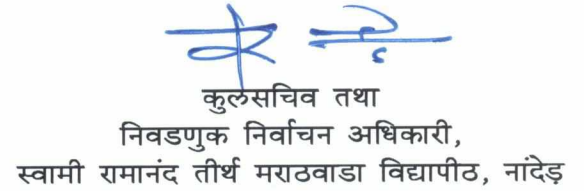 कुलसचिव तथा
निवडणुक निर्वाचन अधिकारी,
स्वामी रामानंद तीर्थ मराठवाडा विद्यापीठ, नांदेड़